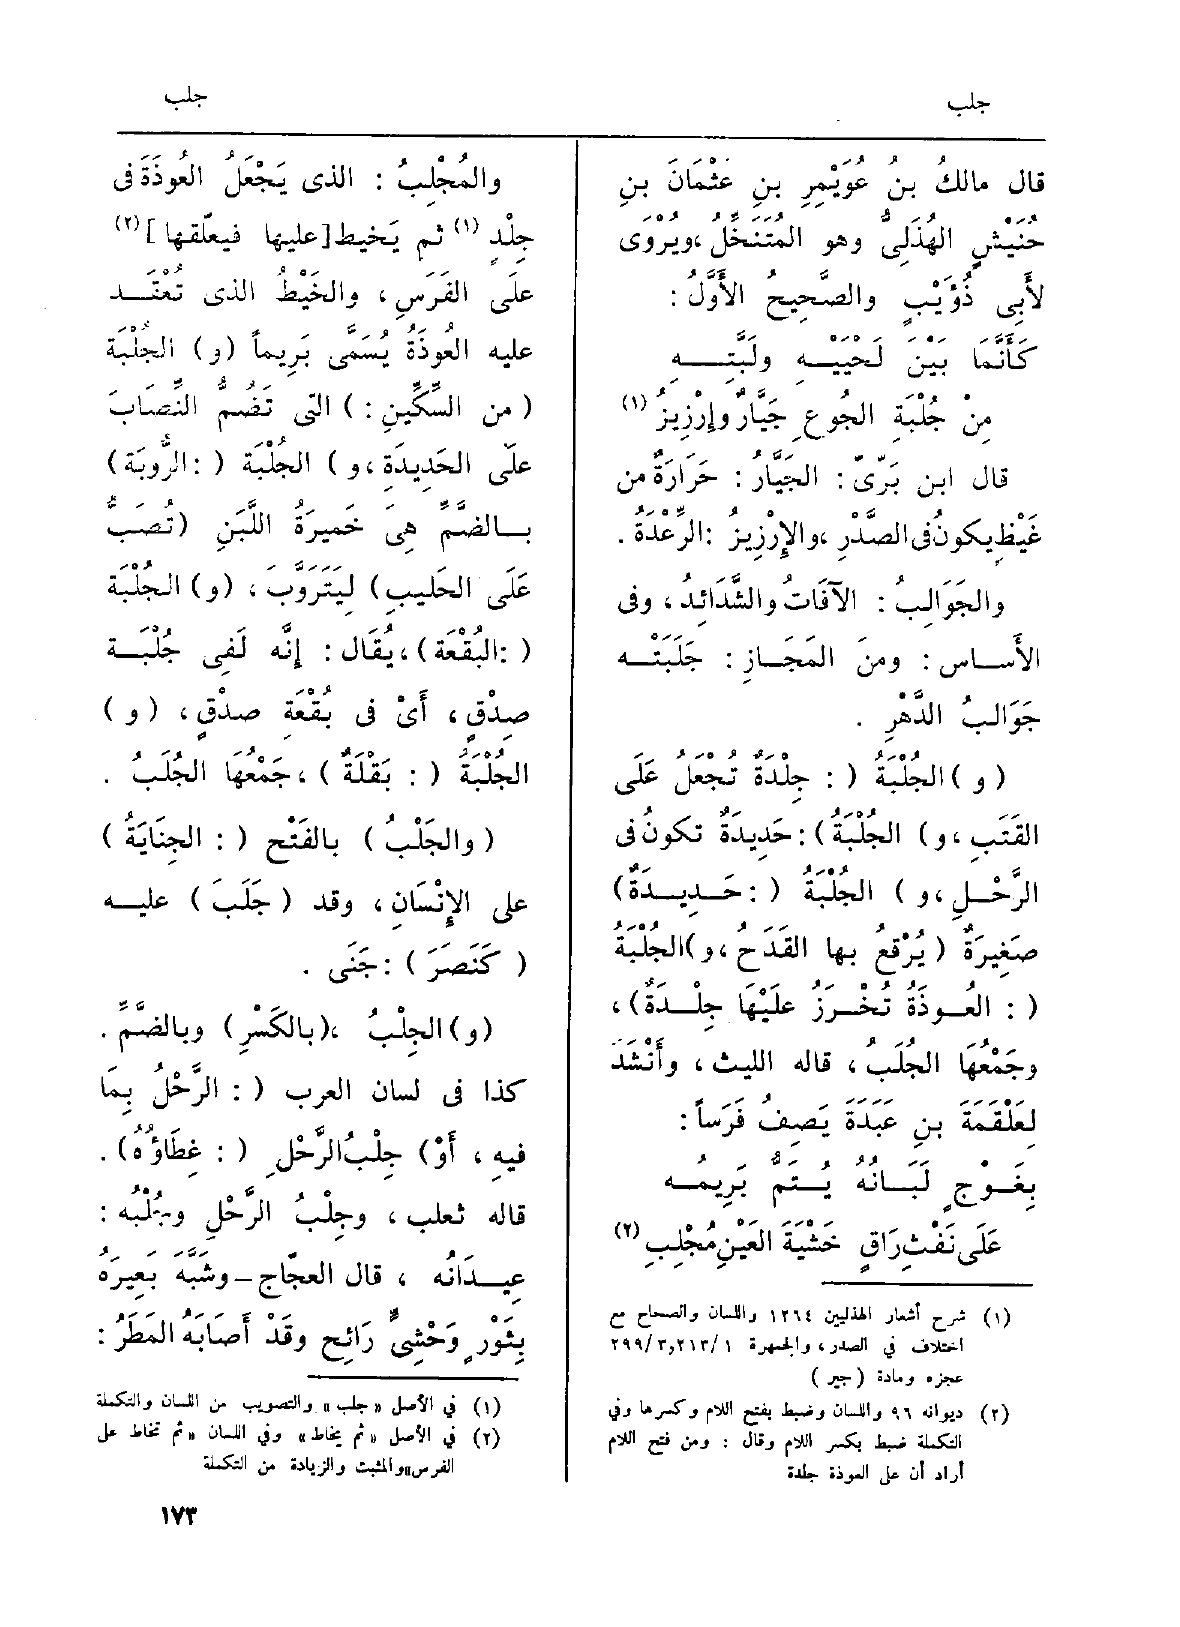 جلب
جلب
قال مالكُ بنُ عُوَيْمِرِ بنِ عثْمَانَ بنِ
حُنَيْشٍ الهُذَلِىُّ وهو المُتَنَخِّلُ، ويُرْوَى
لأَبِى ذُؤَيْبٍ والصَّحِيحُ الأَوَّلُ :
كَأَنَّمَا بَيْنَ لَحْيَيْهِ ولَبَّتِهِ
مِنْ جُلْبَةِ الجُوعِ جَيَّارٌ وإِرْزِيزُ (١)
قال ابن بَرِّىّ : الجَيَّارُ : حَرَارَةٌ من
غَيْظٍ يكونُ فى الصَّدْرِ ، والإِرْزِيزُ : الرِّعْدَةُ .
والجَوَالِبُ : الآفَاتُ والشَّدَائِدُ ، وفى
الأَساس : ومنَ المَجَازِ : جَلَبَتْه
جَوَالِبُ الدَّهْرِ .
( و ) الجُلْبَةُ ( : جِلْدَةٌ تُجْعَلُ عَلَى
القَتَبِ ، و ) الجُلْبَةُ ) : حَدِيدَةٌ تكونُ فى
الرَّحْلِ ، و ) الجُلْبَةُ ( : حَدِيدَةٌ )
صَغِيرَةٌ ( يُرْقَعُ بها القَدَحُ ، و ) الجُلْبَةُ
( : العُوذَةُ تُخْرَزُ علَيْهَا جِلْدَةٌ ) ،
وجَمْعُهَا الجُلَبُ ، قاله الليث ، وأَنْشَدَ
لِعَلْقَمَةَ بنِ عَبَدَةَ يَصِفُ فَرَساً :
بِغَوْجٍ لَبَانُهُ يُتَمُّ بَرِيمُه
عَلَى نَفْثِ رَاقٍ خَشْيَةَ العَيْنِ مُجْلِبِ (٢)
(١) شرح أشعار الهذليين ١٢٦٤ واللسان والصحاح مع
اختلاف في الصدر ، والجمهرة ٢١٣/١ ,٢٩٩/٣
عجزه ومادة (جير )
(٢) ديوانه ٩٦ واللسان وضبط بفتح اللام وكسرها وفي
التكملة ضبط بكسر اللام وقال : ومن فتح اللام
أراد أن على العوذة جلدة
والمُجْلِبُ : الذى يَجْعَلُ العُوذَةَ فى
جِلْدٍ (١) ثم يَخِيط [عليها فيعلقها ] (٢)
عَلَى الفَرَسِ ، والخَيْطُ الذى تُعْقَد
عليه العوذَةُ يُسَمَّى بَرِيماً (و) الجُلْبَةُ
( من السِّكِّينِ : ) التى تَضُمُّ النِّصَابَ
علَى الحَدِيدَةِ ، و ) الجُلْبَةُ ( : الرُّوبَةُ )
بالضَّمِّ هِىَ خَمِيرَةُ اللَّبَنِ (تُصَبُّ
عَلَى الحَلِيبِ) لِيَتَرَوَّبَ ، (و) الجُلْبَةُ
( : البُقْعَة ) ، يُقَال : إِنَّه لَفِى جُلْبَةِ
صِدْقٍ ، أَىْ فى بُقْعَةِ صِدْقٍ ، (و )
الجُلْبَةُ ( : بَقْلَةٌ ) ، جَمْعُها الجُلَبُ .
( والجَلْبُ ) بالفَتْح ( : الجِنَايَةُ )
على الإِنْسَانِ ، وقد ( جَلَبَ ) عليه
( كَنَصَرَ ) : جَنَى .
(و) الجِلْبُ ، (بالكَسْرِ) وبالضَّمِّ .
كذا فى لسان العرب ( : الرَّحْلُ بِمَا
فيه ، أَوْ ) جِلْبُ الرَّحْلِ ( : غِطَاؤُهُ ) .
قاله ثعلب ، وجِلْبُ الرَّحْلِ وجُلْبُه :
عِيدَانُه ، قال العجّاج – وشَبَّه بَعِيرَه
بِثَوْرٍ وَحْشِىٍّ رَائِحٍ وقَدْ أَصَابَهُ المَطَرُ :
(١) في الأصل «جلب» والتصويب من اللسان والتكملة
(٢) في الأصل «ثم يخاط» وفي اللسان «ثم تخاط على
الفرس» والمثبت والزيادة من التكملة
١٧٣